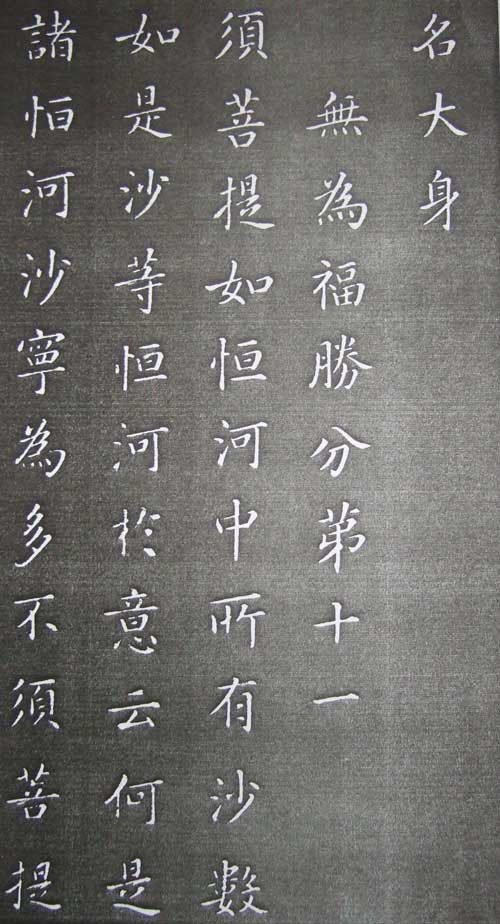 名大身
無為福勝分第十一
須菩提如恒河中所有沙數
如是沙等恒河於意云何是
諸恒河沙寧為多不須菩提